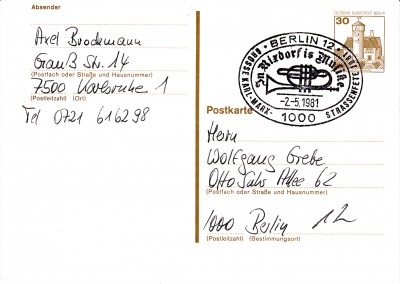 Absender
Axel Brockmann
Gauß Str. 14
(Postfach oder Straße und Hausnummer)
7500 Karlsruhe 1
(Postleitzahl) (Ort)
Tel 0721 616298
DEUTSCHE BUNDESPOST BERLIN
30
BERLIN 12
In Rixdorf is Musike
-2.-5.1981
1000
Postkarte
Herrn
Wolfgang Grebe
Otto Suhr Allee 62
(Postfach oder Straße und Hausnummer)
1000 Berlin 12
(Postleitzahl) (Bestimmungsort)